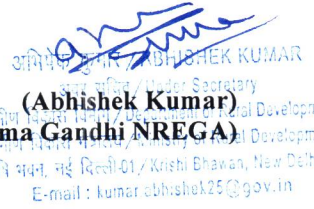 अभिषेक कुमार / ABHISHEK KUMAR
अवर सचिव / Under Secretary
(Abhishek Kumar)
विकास विभाग / Department of Rural Developm
ma Gandhi NREGA)
Ministry of Rural Developm
भवन, नई दिल्ली-01 / Krishi Bhawan, New Delh
E-mail : kumar.abhishek25@gov.in